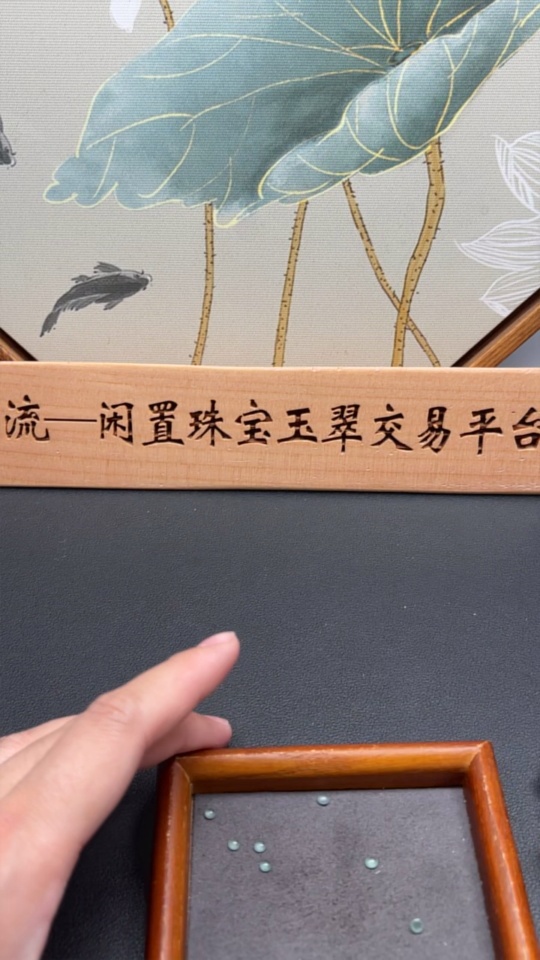 流—闲置珠宝玉翠交易平台